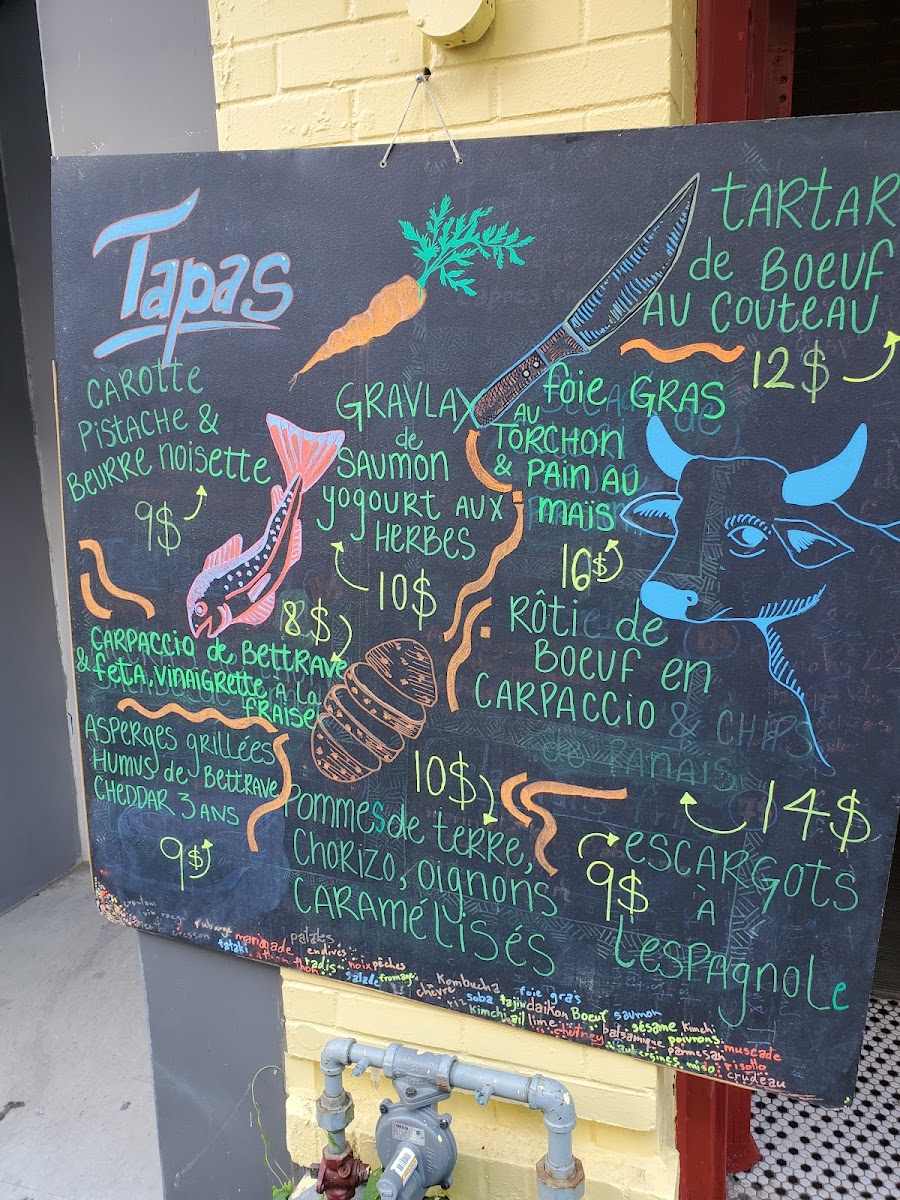 Tapas
CAROTTE
PISTACHE &
BEURRE NOISETTE
9$
GRAVLAX
de
SAUMON
yogourt AUX
HERBES
10$
foie GRAS
AU
TORCHON
& PAIN AU
MAÏS
16$
TARTAR
de BOEUF
AU COUTEAU
12$
8$
CARPACCIO de BETTRAVE
& feTA, VINAIGRETTE à la
fRAISE
RÔTI de
BOEUF en
CARPACCIO & CHIPS
de PANAIS
14$
ASPERGES grillées
HUMUS de BETTRAVE
CHEDDAR 3 ANS
9$
10$
POMMES de TERRE,
CHORIZO, oignons
CARAMÉLISÉS
9$
ESCARGOTS
À
L'ESPAGNOLE
vin rouge
marinade
patates
tataki
endives
thon
radis
noix
pêches
salade
fromage
Kombucha
chèvre
riz
soba
foie gras
tajin
daikon
Boeuf
saumon
kimchi
ail
lime
chutney
balsamique
sésame
Kimchi
poivrons
aubergines
parmesan
muscade
miso
risotto
crudeau